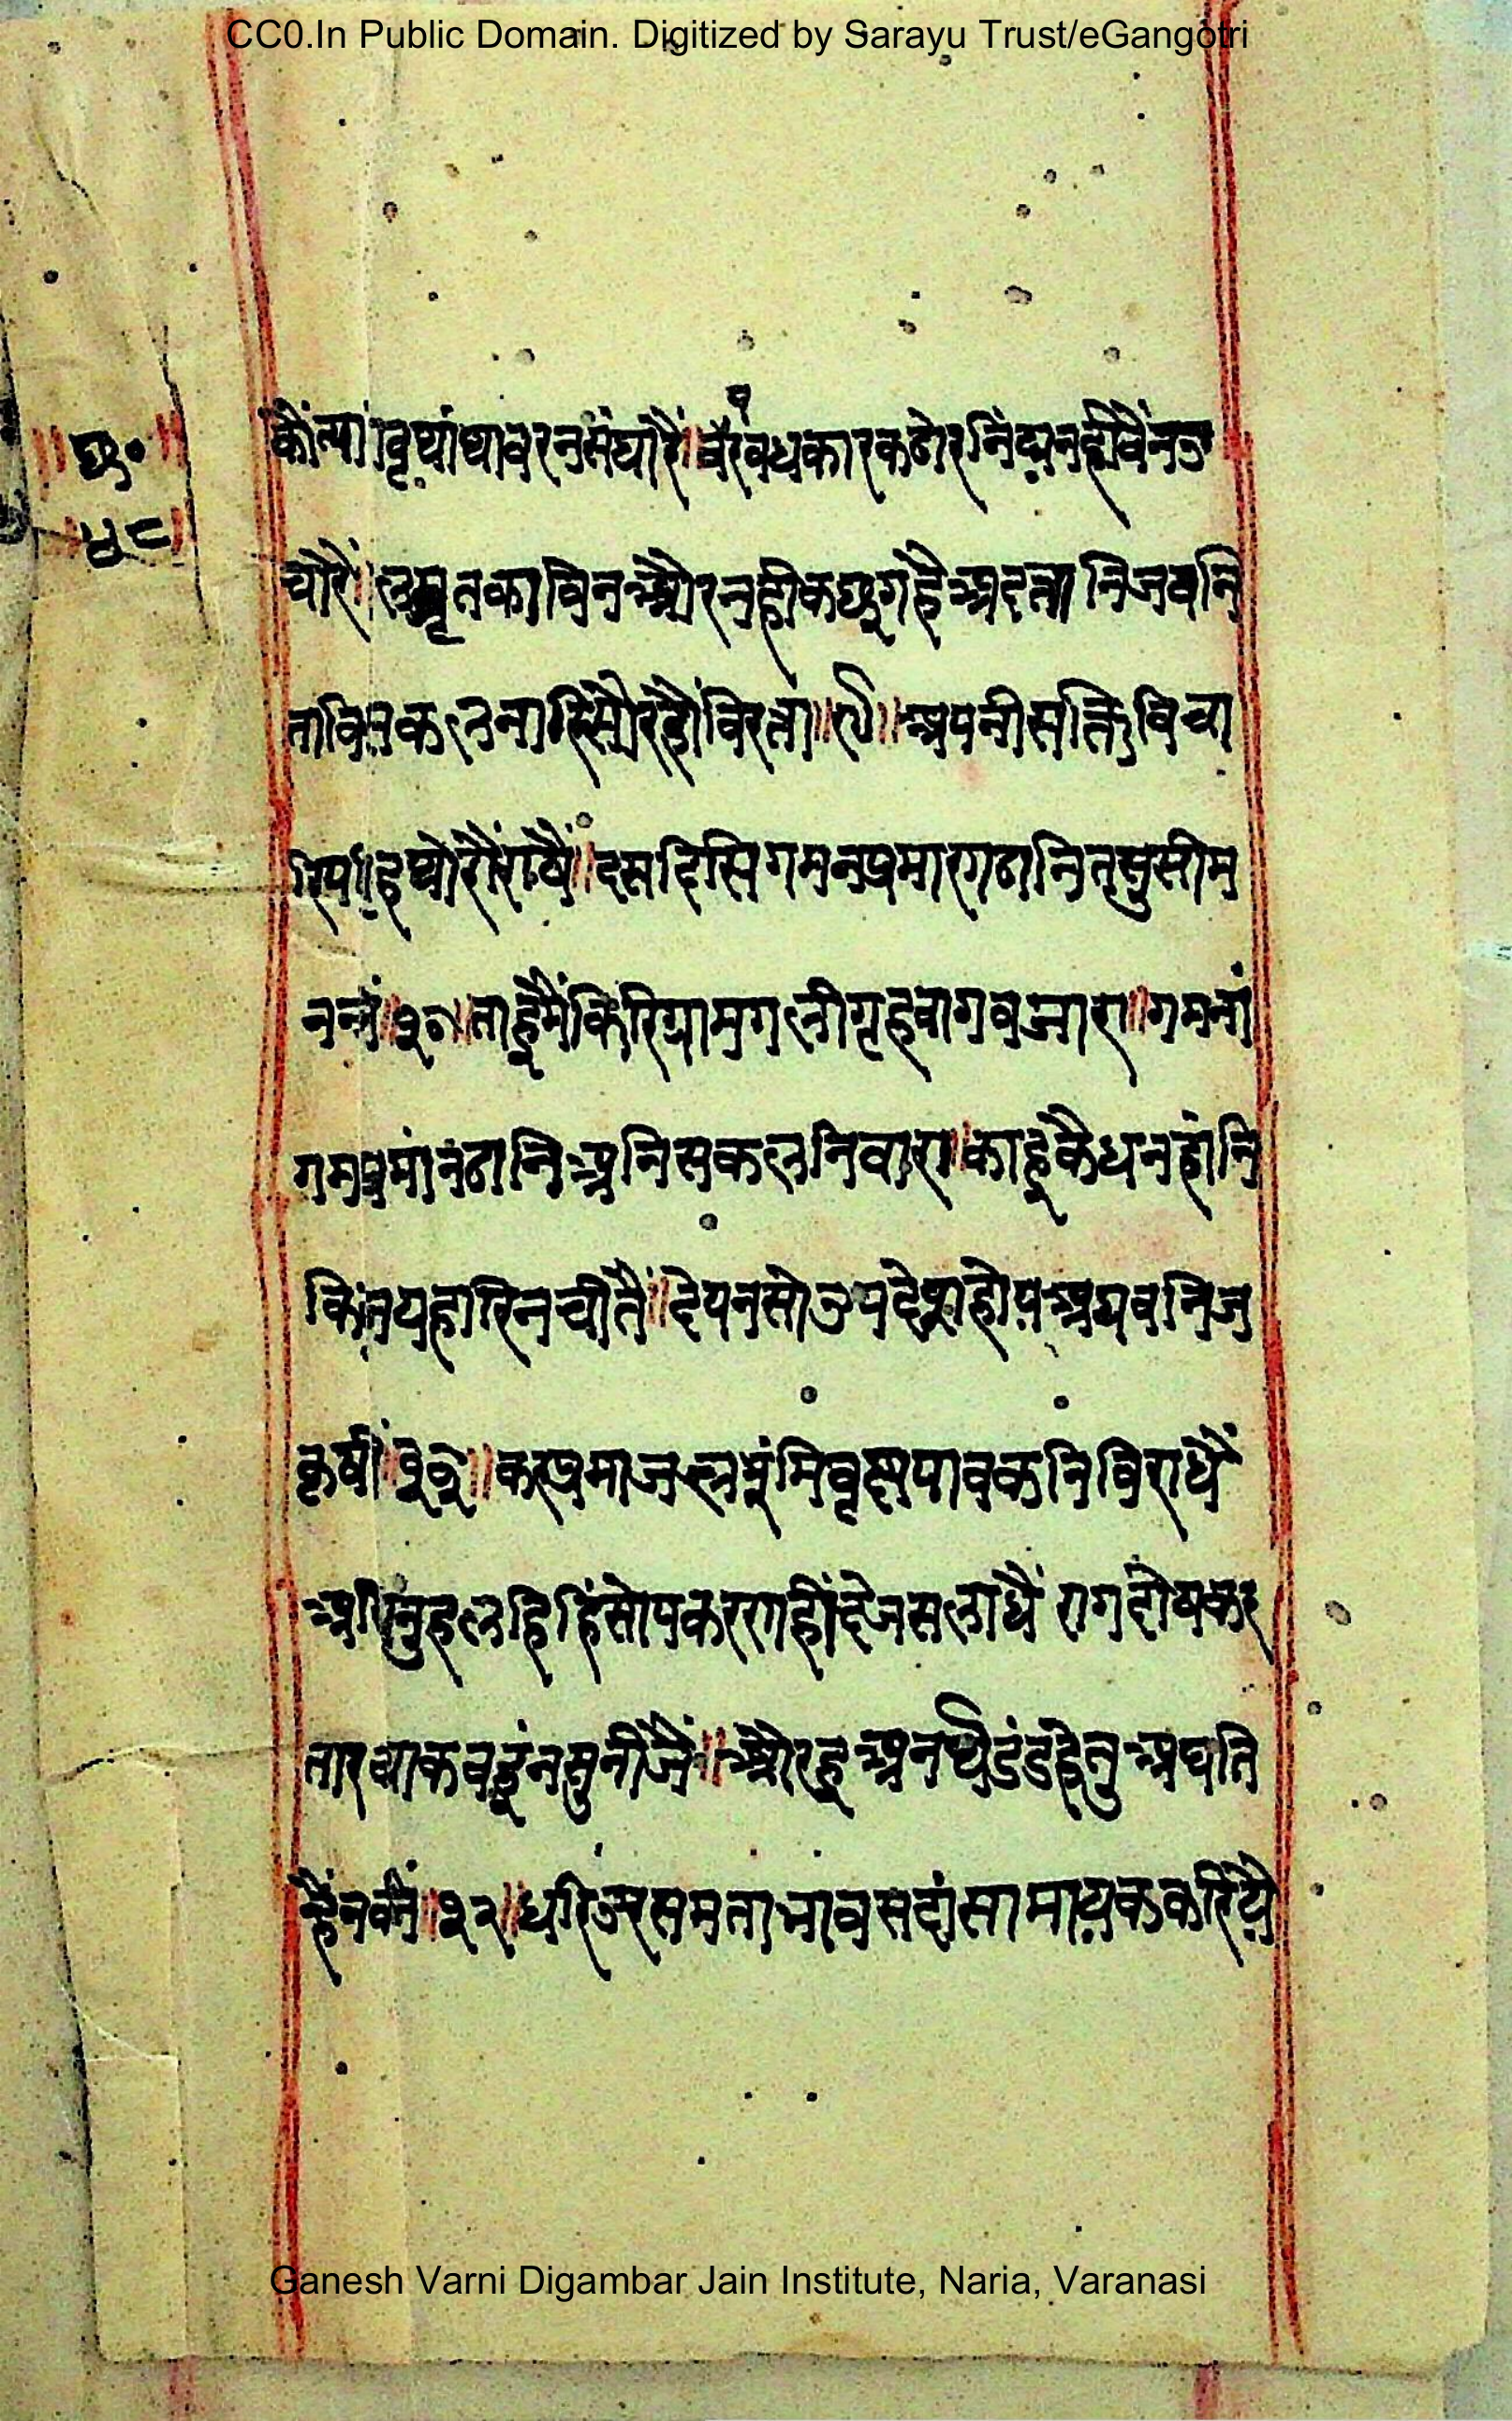 CC0.In Public Domain. Digitized by Sarayu Trust/eGangotri
॥छ०॥
॥४८॥
कौंत्यागवृथाथावरनसंघारै॥परवधकारकठोरनिंद्यनहींवैनउ
चारै॥जलमृतकाविनऔरनहीकछुगहैअदत्ता निजवनि
ताविनकलनारिसौरहैविरता॥९॥अपनीसक्तिविचा
रिपरिग्रहथोरौराषै॥दसदिसिगमनप्रमाणठानितसुसीम
ननाषै॥१०॥ताहूमैंफिरिग्रामगलीगृहबागबजारा॥गमनां
गमप्रमांनठानिअनिसकलनिवारा॥काहूकैधनहांनि
किजयहारिनचीतैं॥देयनसोउपदेशहोयअघवनिज
कृषीतैं॥११॥करप्रमादजलभूंमिवृक्षपावकनविराधै
असिधनुहलहिंसोपकरणनहींदेजसलाधै रागदोषकर
तारकथाकबहूंनसुनीजै॥औरहूअनर्थदंडहेतुअघति
न्हैंनकीजै॥१२॥धरिउरसमताभावसदांसामायककरिये
Ganesh Varni Digambar Jain Institute, Naria, Varanasi